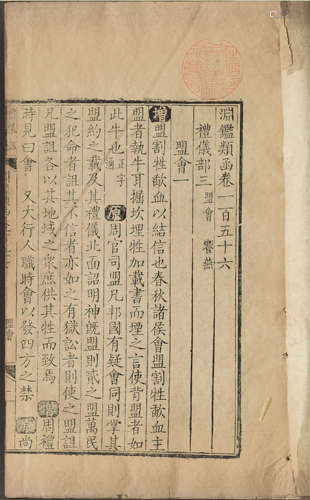 淵鑑類函卷一百五十六
禮儀部三 盟會 饗燕
盟會一
增 盟割牲歃血以結信也春秋諸侯會盟割牲歃血主
盟者執牛耳掘坎埋牲加載書而埋之言使背盟者如
此牛也 正字通 原 周官司盟凡邦國有疑會同則掌其
盟約之載及其禮儀北面詔明神旣盟則貳之盟萬民
之犯命者詛其不信者亦如之有獄訟者則使之盟詛
凡盟詛各以其地域之衆庶供其牲而致焉 增 周禮
時見曰會 又大行人職時會以發四方之禁 原 尚
盟會